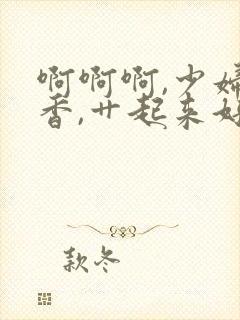 啊啊啊,少妇
香,廾起来好
款冬